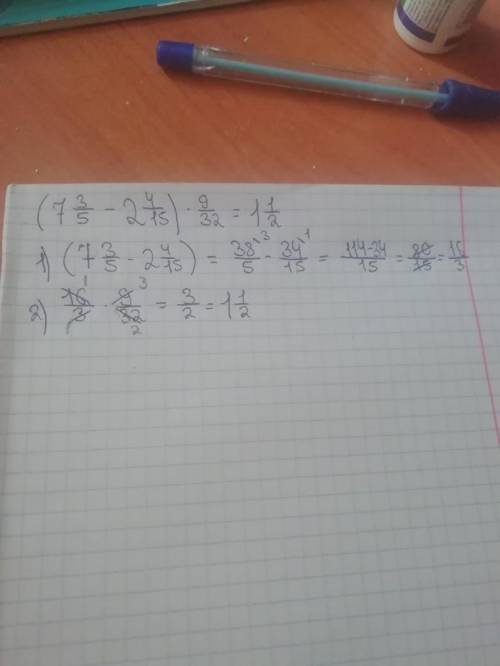 (7 3/5 - 2 4/15) · 9/32 = 1 1/2
1) (7 3/5 - 2 4/15) = 38/5 ^3 - 34/15 ^1 = 114-34/15 = 80/15 = 16/3
2) 16/3 ^1 · 9/32 ^3 _2 = 3/2 = 1 1/2